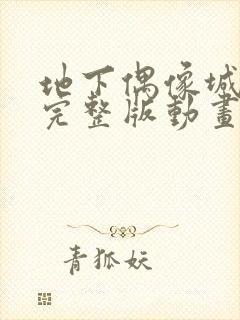 地下偶像城
完整版動畫
青狐妖